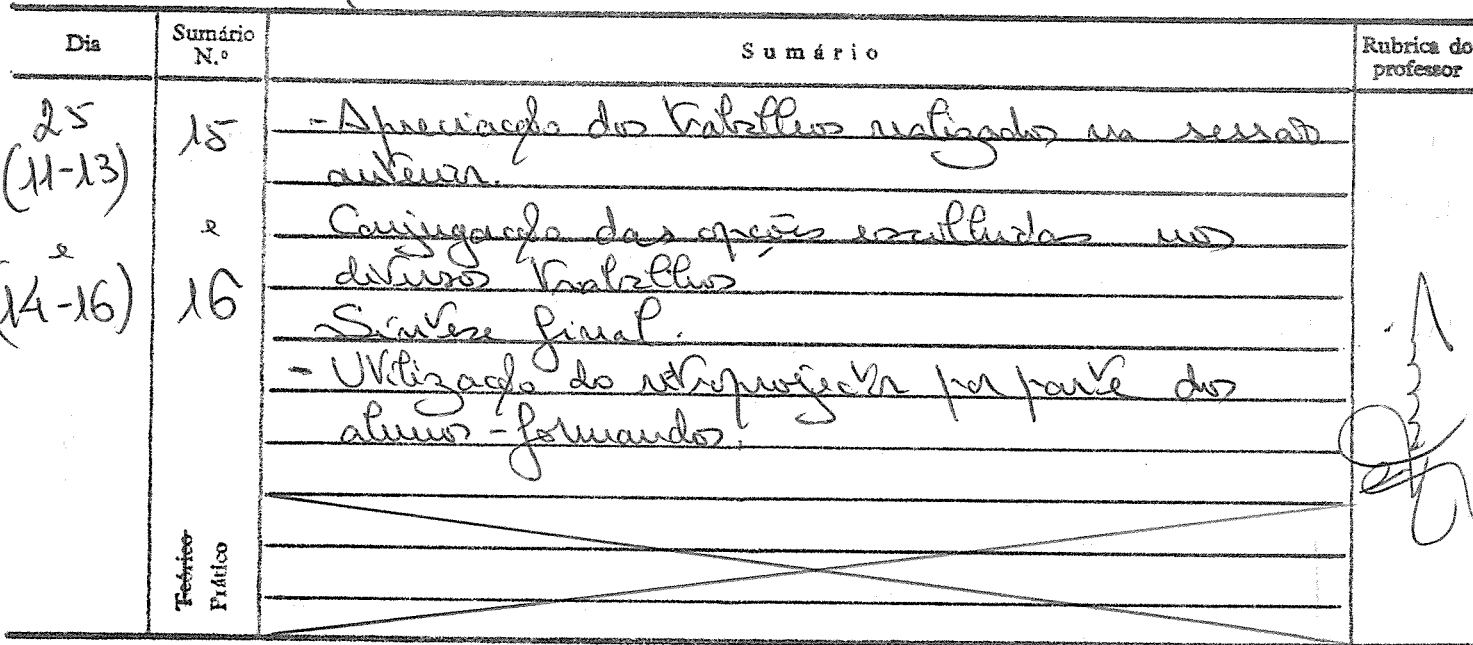 Dia
Sumário N.º
Sumário
Rubrica do professor
25
(11-13)
e
(14-16)
15
e
16
- Apreciação dos trabalhos realizados na sessão
anterior.
Conjugação das opções escolhidas nos
diversos trabalhos
- Síntese final.
- Utilização do retroprojector por parte dos
alunos-formandos.
Teórico
Prático